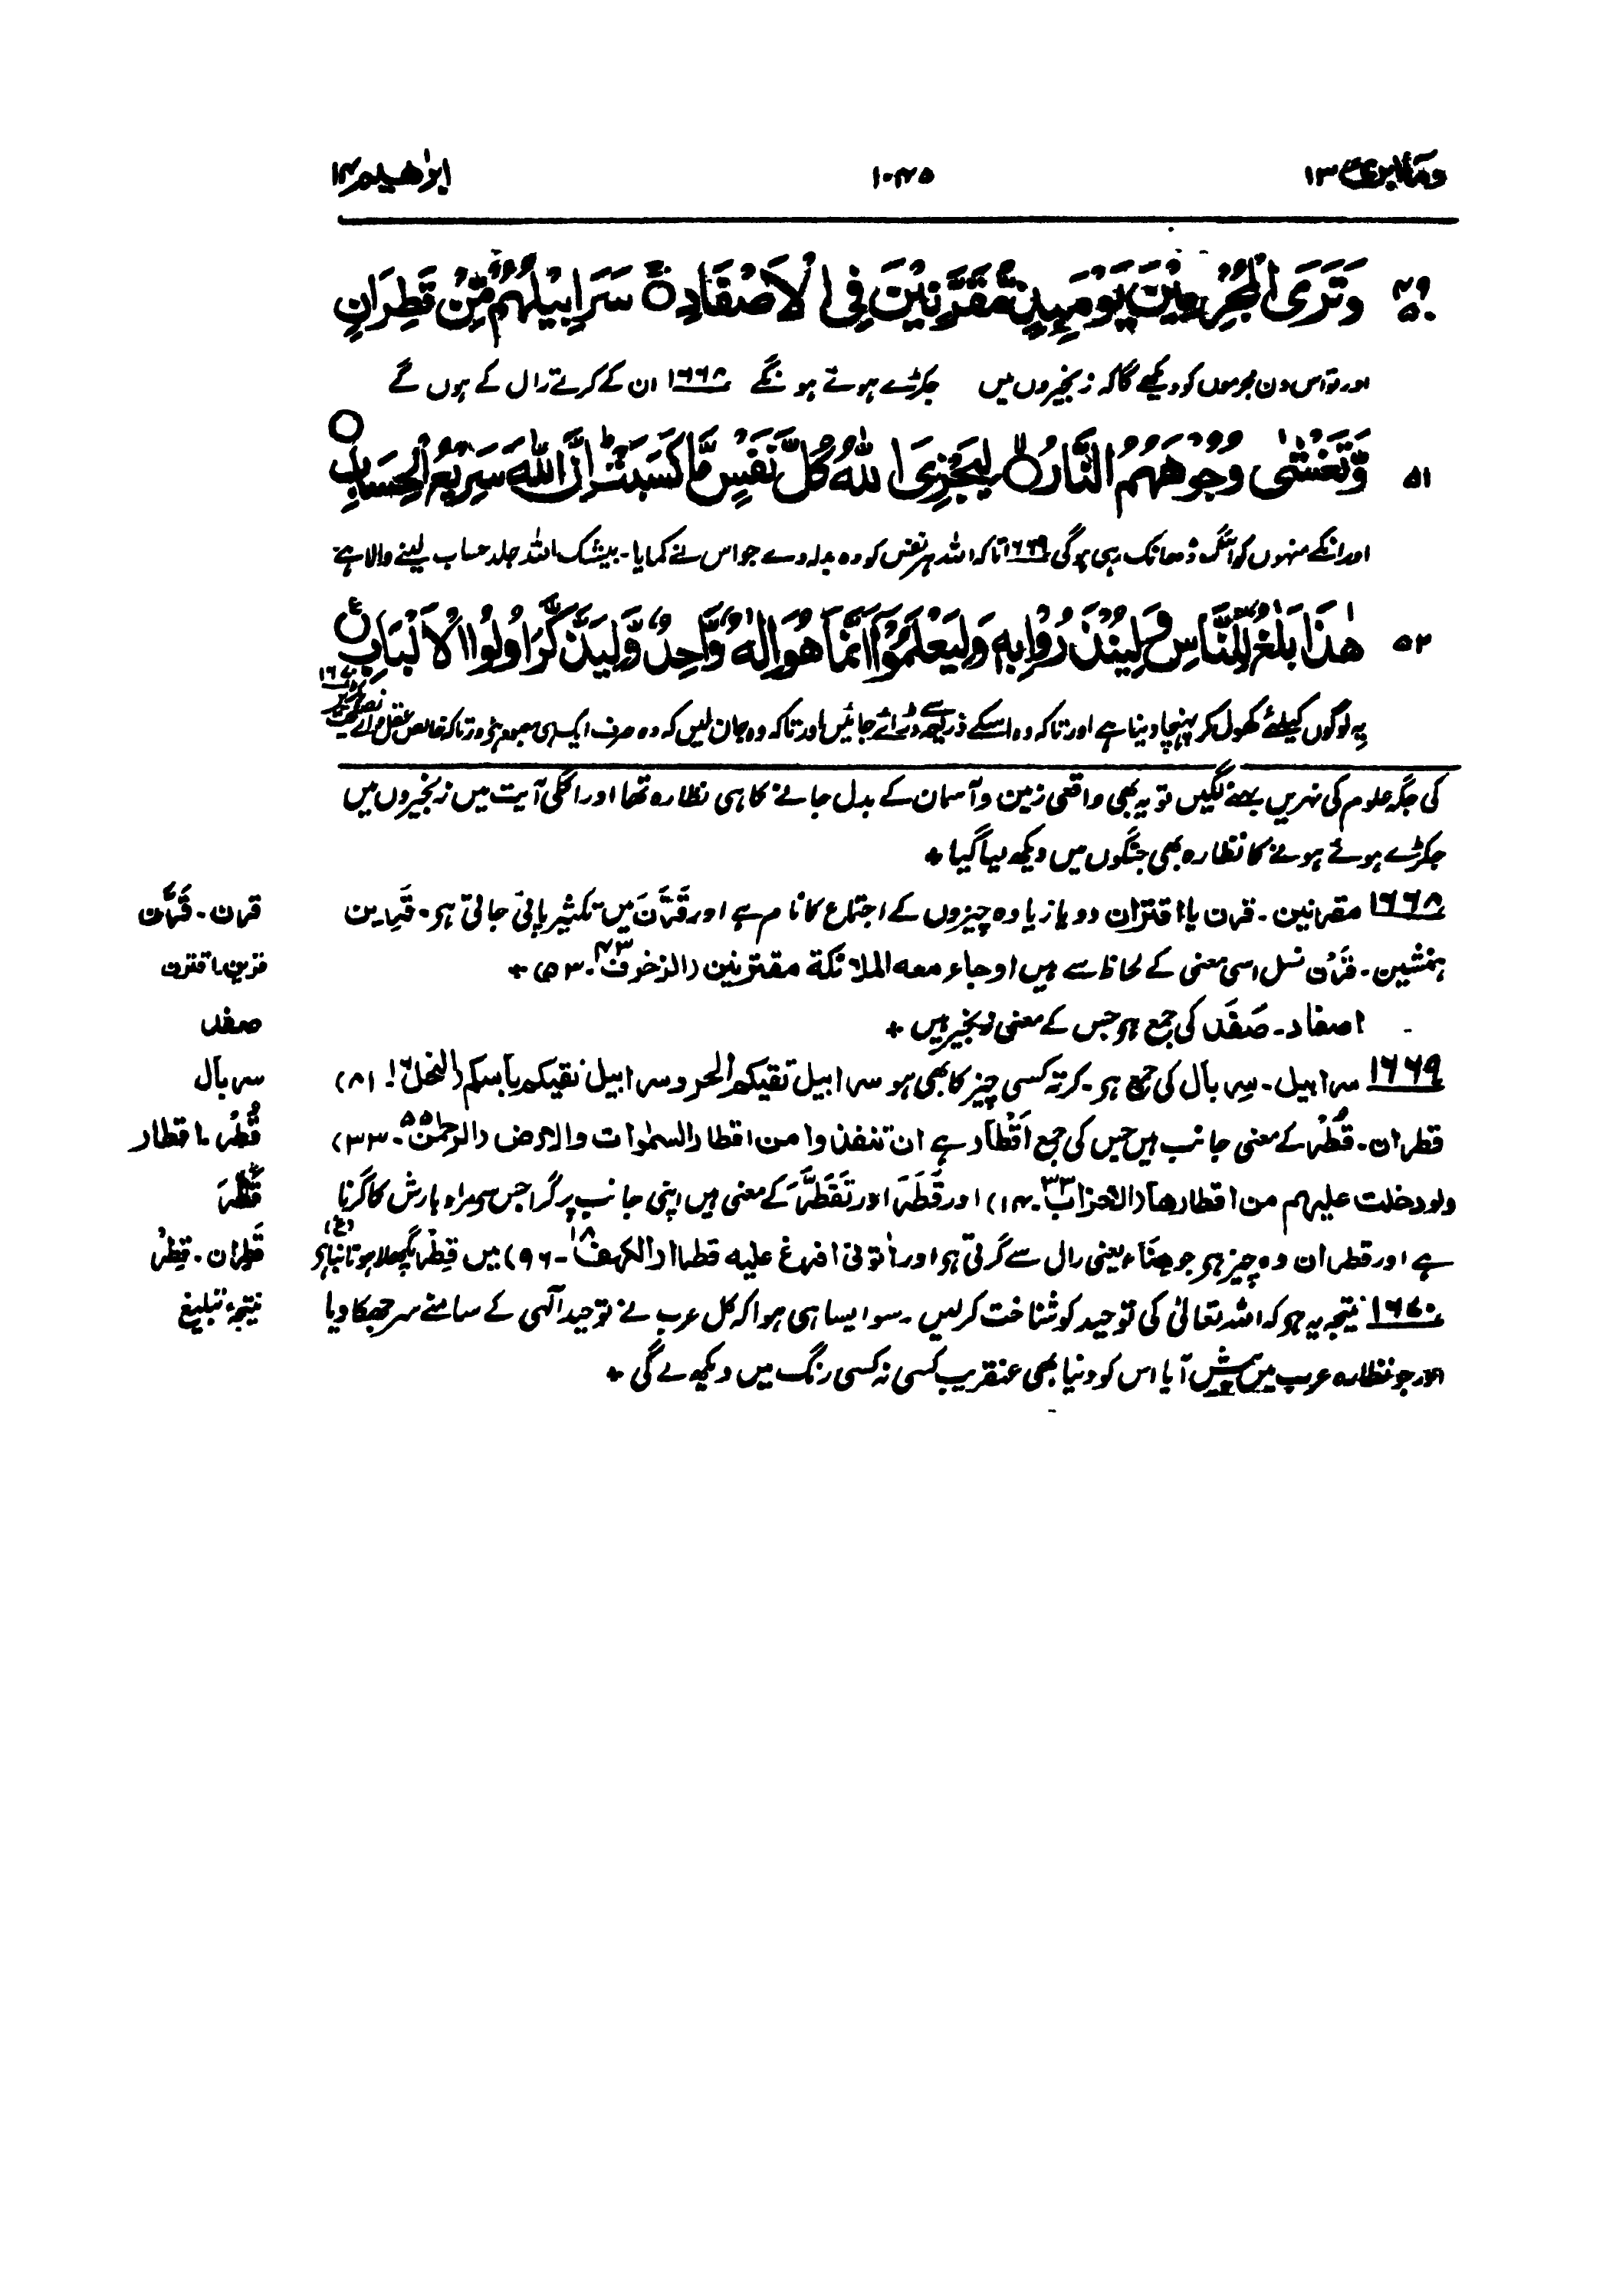 ومآ ابرئ ١٣ ١٠٢٥ ابرٰھیم ١٤
٤٩ ٥٠ وَتَرَى الْمُجْرِمِيْنَ يَوْمَئِذٍ مُّقَرَّنِيْنَ فِى الْاَصْفَادِ ۚ سَرَابِيْلُهُمْ مِّنْ قَطِرَانٍ
اور تو اس دن مجرموں کو دیکھے گا کہ زنجیروں میں جکڑے ہوئے ہونگے ١٦٦٨ ان کے کرتے رال کے ہوں گے
٥١ وَّتَغْشٰى وُجُوْهَهُمُ النَّارُ ۙ لِيَجْزِىَ اللّٰهُ كُلَّ نَفْسٍ مَّا كَسَبَتْ ؕ اِنَّ اللّٰهَ سَرِيْعُ الْحِسَابِ
اور انکے منہوں کو آگ ڈھانک رہی ہوگی ١٦٦٩ تاکہ اللہ ہر نفس کو وہ بدلہ دے جو اس نے کمایا۔ بیشک اللہ جلد حساب لینے والا ہے
٥٢ هٰذَا بَلٰغٌ لِّلنَّاسِ وَلِيُنْذَرُوْا بِهٖ وَلِيَعْلَمُوْٓا اَنَّمَا هُوَ اِلٰهٌ وَّاحِدٌ وَّلِيَذَّكَّرَ اُولُوا الْاَلْبَابِ
یہ لوگوں کیلئے کھول کر پہنچا دینا ہے اور تاکہ وہ اسکے ذریعہ سے ڈرائے جائیں اور تاکہ وہ جان لیں کہ وہ صرف ایک ہی معبود ہے اور تاکہ خالص عقل والے نصیحت پکڑیں ١٦٧٠
کی جگہ علوم کی نہریں بہنے لگیں تو یہ بھی واقعی زمین و آسمان کے بدل جانے کا ہی نظارہ تھا اور اگلی آیت میں زنجیروں میں
جکڑے ہوئے ہونے کا نظارہ بھی جنگوں میں دیکھ لیا گیا +
١٦٦٨ مقرنین۔ قرن یا اقتران دو یا زیادہ چیزوں کے اجتماع کا نام ہے اور قَرَّنَ میں تکثیر پائی جاتی ہے۔ قَرِین قرن۔ قَرَّن
ہمنشین۔ قَرْن نسل اسی معنی کے لحاظ سے ہیں او جاء معه الملائكة مقترنین (الزخرف ٤٣۔ ٥٣) + قرین۔ اقترن
اصفاد۔ صَفَد کی جمع ہے جس کے معنی زنجیر ہیں + صفد
١٦٦٩ سرابیل۔ سِربال کی جمع ہے۔ کرتہ کسی چیز کا بھی ہو سرابیل تقیکم الحر وسرابیل تقیکم باسکم (النحل ١٦۔ ٨١) سربال
قطران۔ قُطْر کے معنی جانب ہیں جس کی جمع اَقْطَار ہے ان تنفذوا من اقطار السمٰوات والارض (الرحمٰن ٥٥۔ ٣٣) قُطْر۔ اقطار
ولو دخلت علیهم من اقطارها (الاحزاب ٣٣۔ ١٤) اور قَطَرَ اور تَقَطَّرَ کے معنی ہیں اپنی جانب پر گرا جس سے مراد بارش کا گرنا قَطَرَ
ہے اور قطران وہ چیز ہے جو ھِنَاء یعنی رال سے گرتی ہے اور اٰتونی افرغ علیه قطرا (الکهف ١٨۔ ٩٦) میں قِطْر پگھلا ہوا تانبا ہے (غ) قَطِران۔ قِطْر
١٦٧٠ نتیجہ یہ ہو کہ اللہ تعالیٰ کی توحید کو شناخت کرلیں۔ سو ایسا ہی ہوا کہ کل عرب نے توحید الٰہی کے سامنے سر جھکا دیا نتیجۂ تبلیغ
اور جو نظارہ عرب میں پیش آیا اس کو دنیا بھی عنقریب کسی نہ کسی رنگ میں دیکھ لے گی +